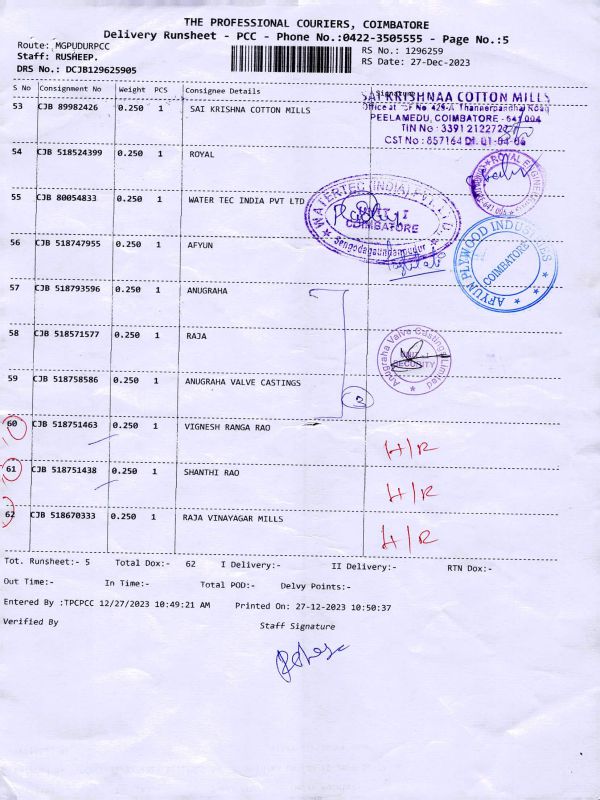 THE PROFESSIONAL COURIERS, COIMBATORE
Delivery Runsheet - PCC - Phone No.:0422-3505555 - Page No.:5
Route: MGPUDURPCC
RS No.: 1296259
Staff: RUSHEEP.
RS Date: 27-Dec-2023
DRS No.: DCJB129625905
S No Consignment No Weight PCS Consignee Details Signature
53 CJB 89982426 0.250 1 SAI KRISHNA COTTON MILLS
SAI KRISHNAA COTTON MILLS
Office at SF No 429-A Thanneerpandhal Road
PEELAMEDU, COIMBATORE - 641 004
TIN No : 33912122727
CST No : 857164 Dt. 01-04-06
54 CJB 518524399 0.250 1 ROYAL
ROYAL
55 CJB 80054833 0.250 1 WATER TEC INDIA PVT LTD
WATERTEC (INDIA) PVT. LTD.
UNIT - I
COIMBATORE
Sengodagoundanpudur
56 CJB 518747955 0.250 1 AFYUN
AFYUN PLYWOOD INDUSTRIES
COIMBATORE
57 CJB 518793596 0.250 1 ANUGRAHA
58 CJB 518571577 0.250 1 RAJA
Anugraha Valve Castings Limited
UNIT - I
SECURITY
59 CJB 518758586 0.250 1 ANUGRAHA VALVE CASTINGS
3
60 CJB 518751463 0.250 1 VIGNESH RANGA RAO
H/R
61 CJB 518751438 0.250 1 SHANTHI RAO
H/R
62 CJB 518670333 0.250 1 RAJA VINAYAGAR MILLS
H/R
Tot. Runsheet:- 5 Total Dox:- 62 I Delivery:- II Delivery:- RTN Dox:-
Out Time:- In Time:- Total POD:- Delvy Points:-
Entered By :TPCPCC 12/27/2023 10:49:21 AM Printed On: 27-12-2023 10:50:37
Verified By Staff Signature